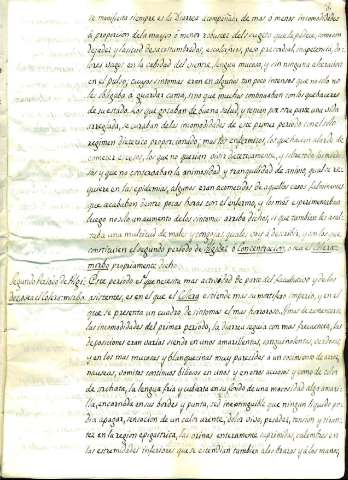 se manifiesta siempre es la Diarrea acompañada de mas o menos incomodidades
á proporcion de la mayor ó menor robustez del sugeto que la padece, como son
dejadez y lasitud desacostumbradas, escalofrios, peso precordial, inapetencia, do-
lores vagos en la cabidad del vientre, lengua mucosa, y sin ninguna alteracion
en el pulso; cuyos sintomas eran en algunos tan poco intensos que no solo no
les obligaba a guardar cama, sino que muchos continuaban con los quehaceres
de su estado. Los que gozaban de buena salud y tenian por otra parte una vida
arreglada, se curaban de las incomodidades de este primer periodo con el solo
regimen dietetico proporcionado; mas los enfermos, los que hacian alarde de
comer a excesos, los que no querian vivir dieteticamente, y sobre todo los medro-
sos y que no conservaban la animosidad y tranquilidad de animo, qual se re-
quiere en las epidemias, algunos eran acometidos de aquellos casos fulminantes
que acababan dentro pocas horas con el enfermo, y los mas experimentaban
luego no solo un aumento de los sintomas arriba dichos, si que tambien les asal-
taba una multitud de males y congojas quales, voy a describir, y son los que
constituyen el segundo periodo de Algidez ó Concentracion, ó sea el Colera-
morbo propiamente dicho.
Segundo Periodo de Algi- Este periodo es el que necesita mas actividad de parte del Facultativo y de los
dez, o sea el Colera-morbo. asistentes, es en el que el Colera estiende mas su mortifero imperio, y en el
que se presenta un cuadro de sintomas el mas horroroso. A mas de aumentarse
las incomodidades del primer periodo, la diarrea seguia con mas frecuencia, las
deposiciones eran varias siendo en unos amarillentas, sanguinolentas, verdosas,
y en los mas mucosas y blanquecinas muy parecidas a un cocimiento de arroz,
nauseas, vomitos continuos biliosos en unos y en otros acuosos y como de color
de orchata, la lengua fria y cubierta en su fondo de una mucosidad algo amari-
lla, encarnada en sus bordes y punta, sed inextinguible que ningun liquido po-
dia apagar, sensacion de un calor urente, dolor vivo, pesadez, tension y tiran-
tez en la region epigastrica, las orinas enteramente suprimidas, calambres en
las extremidades inferiores que se estendian tambien a los brazos y a las manos,